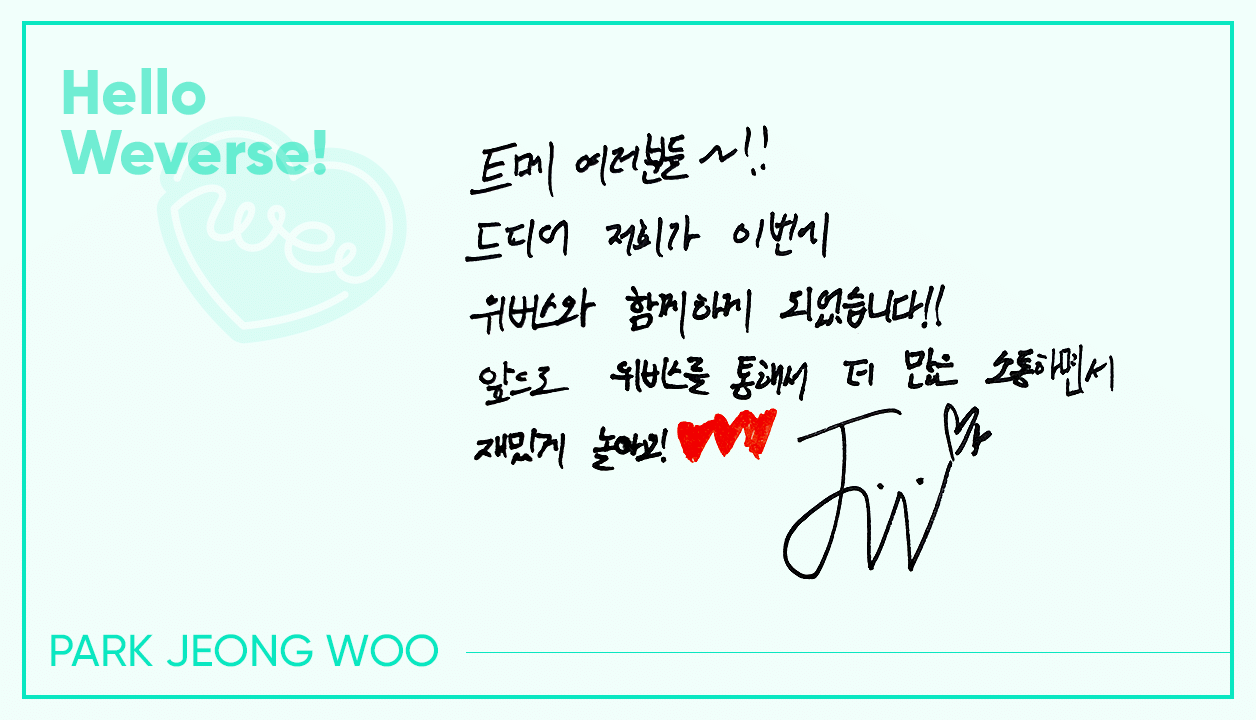 Hello
Weverse!
we
트메 여러분들~!!
드디어 저희가 이번에
위버스와 함께하게 되었습니다!!
앞으로 위버스를 통해서 더 많은 소통하면서
재밌게 놀아요!
JW
PARK JEONG WOO